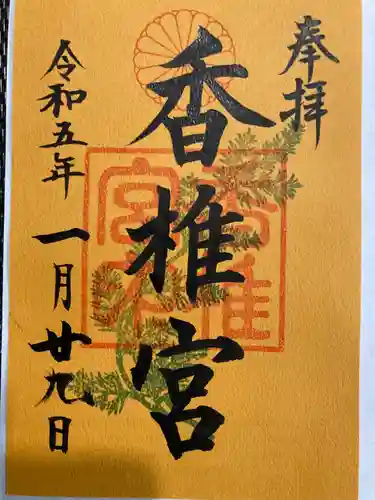 奉拝
香椎宮
令和五年一月廿九日
香椎宮印